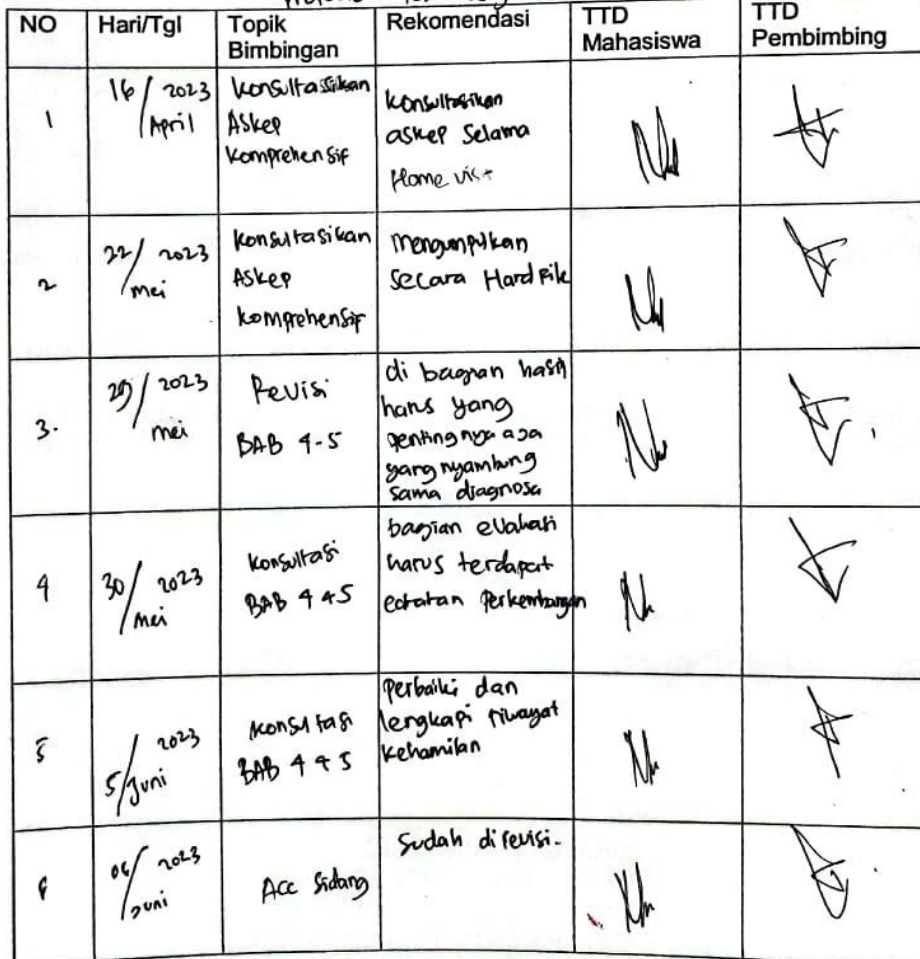 NO Hari/Tgl Topik Bimbingan Rekomendasi TTD Mahasiswa TTD Pembimbing
1 16/April 2023 Konsultasikan Askep Komprehensif Konsultasikan askep Selama Home visit
2 22/mei 2023 Konsultasikan Askep Komprehensif Mengumpulkan Secara Hard File
3. 29/mei 2023 Revisi BAB 4-5 di bagian hasil harus yang pentingnya aja yang nyambung sama diagnosa
4 30/mei 2023 Konsultasi BAB 4 & 5 bagian evaluasi harus terdapat catatan Perkembangan
5 5/Juni 2023 Konsultasi BAB 4 & 5 Perbaiki dan lengkapi riwayat kehamilan
6 06/Juni 2023 Acc Sidang Sudah direvisi.